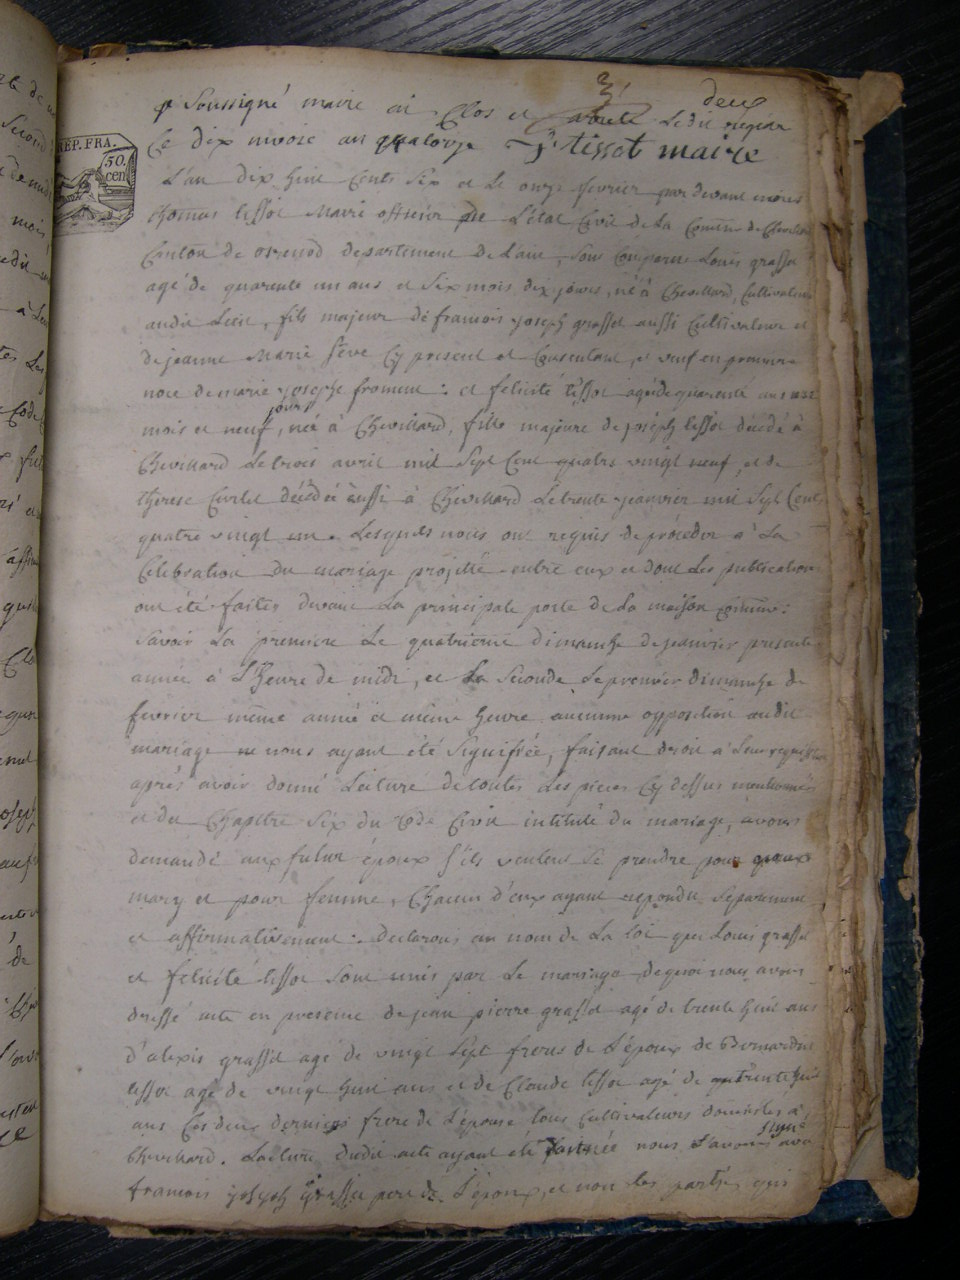 3
deux
Soussigné maire ai Clos et arreté Le dit regitre
Ce dix nivose an quatorze T. tissot maire
REP. FRA.
50.
cen
L'an dix huit Cents Six et Le onze fevrier par devant nous
thomas tissot Maire officier de L'etat Civil de La Comune de Chevillard
Canton de departement de L'ain, Sont Comparus Louis grasset
agé de quarente un ans et Six mois dix jours, né à Chevillard, Cultivateur
audit Lieu, fils majeur de francois joseph grasset aussi Cultivateur et
de jeanne Marie Seve Cy present et Consentant, et veuf en premiere
noce de marie josephe froment : et felicité tissot agée de quarente ans
mois et neuf jours, née à Chevillard, fille majeure de joseph tissot décédé à
Chevillard Le trois avril mil Sept Cent quatre vingt neuf, et de
therese décédée aussi à Chevillard Le trente jeanvier mil Sept Cent
quatre vingt un. Lesquels nous ont requis de procéder à La
Celebration du mariage projetté entre eux et dont Les publications
ont été faites devant La principale porte de La maison Comune :
Savoir La premiere Le quatrieme dimanche de jeanvier presente
année à L'heure de midi, et La Seconde Le premier dimanche de
fevrier même année et même heure aucunne opposition audit
mariage ne nous ayant été Signifiée, faisant droit à Leur requisition
après avoir donné Lecture de toutes Les pieces Cy dessus mentionnés
et du Chapitre Six du Code Civil intitulé du mariage, avons
demandé aux futur époux S'ils veulent Se prendre pour
mary et pour femme, Chacun d'eux ayant repondu Separement
et affirmativement : declarons au nom de La loi que Louis grasset
et felicité tissot Sont unis par Le mariage de quoi nous avons
dressé acte en presence de jean pierre grasset agé de trente huit ans
d'alexis grasset agé de vingt Sept freres de L'époux de Bernardin
tissot agé de vingt huit ans et de Claude tissot agé de trente huit
ans Ces deux derniers frere de L'épouse tous Cultivateurs domiciliés à
Chevillard. Lecture dudit acte ayant été nous L'avons signé avec
francois joseph grasset pere de L'époux, et non les parties qui